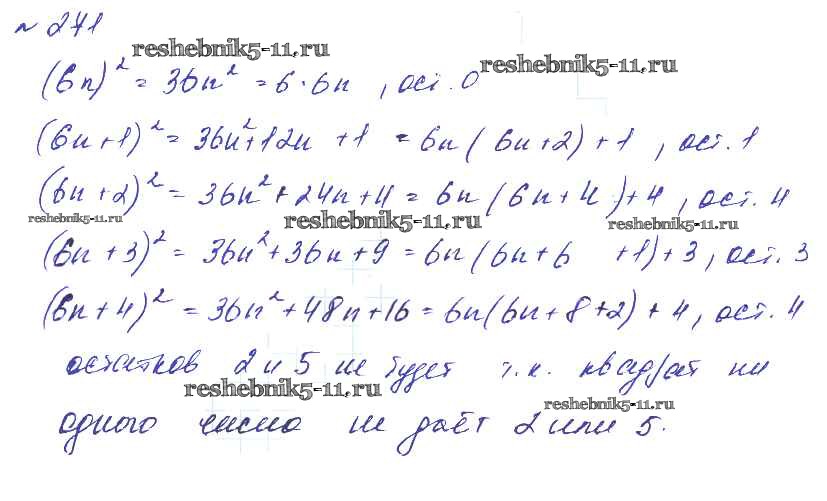 № 271
reshebnik5-11.ru
(6n)² = 36n² = 6·6n , ост. 0
reshebnik5-11.ru
(6n+1)² = 36n²+12n +1 = 6n(6n+2)+1 , ост. 1
(6n+2)² = 36n²+24n+4 = 6n(6n+4)+4 , ост. 4
reshebnik5-11.ru reshebnik5-11.ru reshebnik5-11.ru
(6n+3)² = 36n²+36n+9 = 6n(6n+6 +1)+3 , ост. 3
(6n+4)² = 36n²+48n+16 = 6n(6n+8+2)+4 , ост. 4
остатков 2 и 5 не будет т.к. квадрат ни
reshebnik5-11.ru reshebnik5-11.ru
одного числа не даёт 2 или 5.